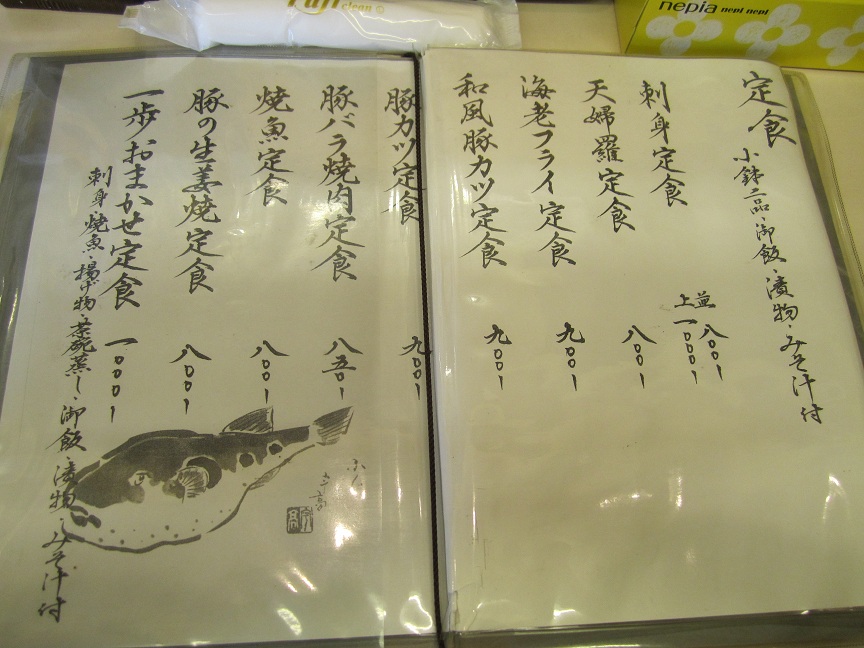 Fuji
clean
nepia nepi nepi
定食
小鉢二品・御飯・漬物・みそ汁付
刺身定食
並 八〇〇ー
上 一〇〇〇ー
天婦羅定食 八〇〇ー
海老フライ定食 九〇〇ー
和風豚カツ定食 九〇〇ー
豚カツ定食 九〇〇ー
豚バラ焼肉定食 八五〇ー
焼魚定食 八〇〇ー
豚の生姜焼定食 八〇〇ー
一歩おまかせ定食 一〇〇〇ー
刺身・焼魚・揚げ物・茶碗蒸し・御飯・漬物・みそ汁付